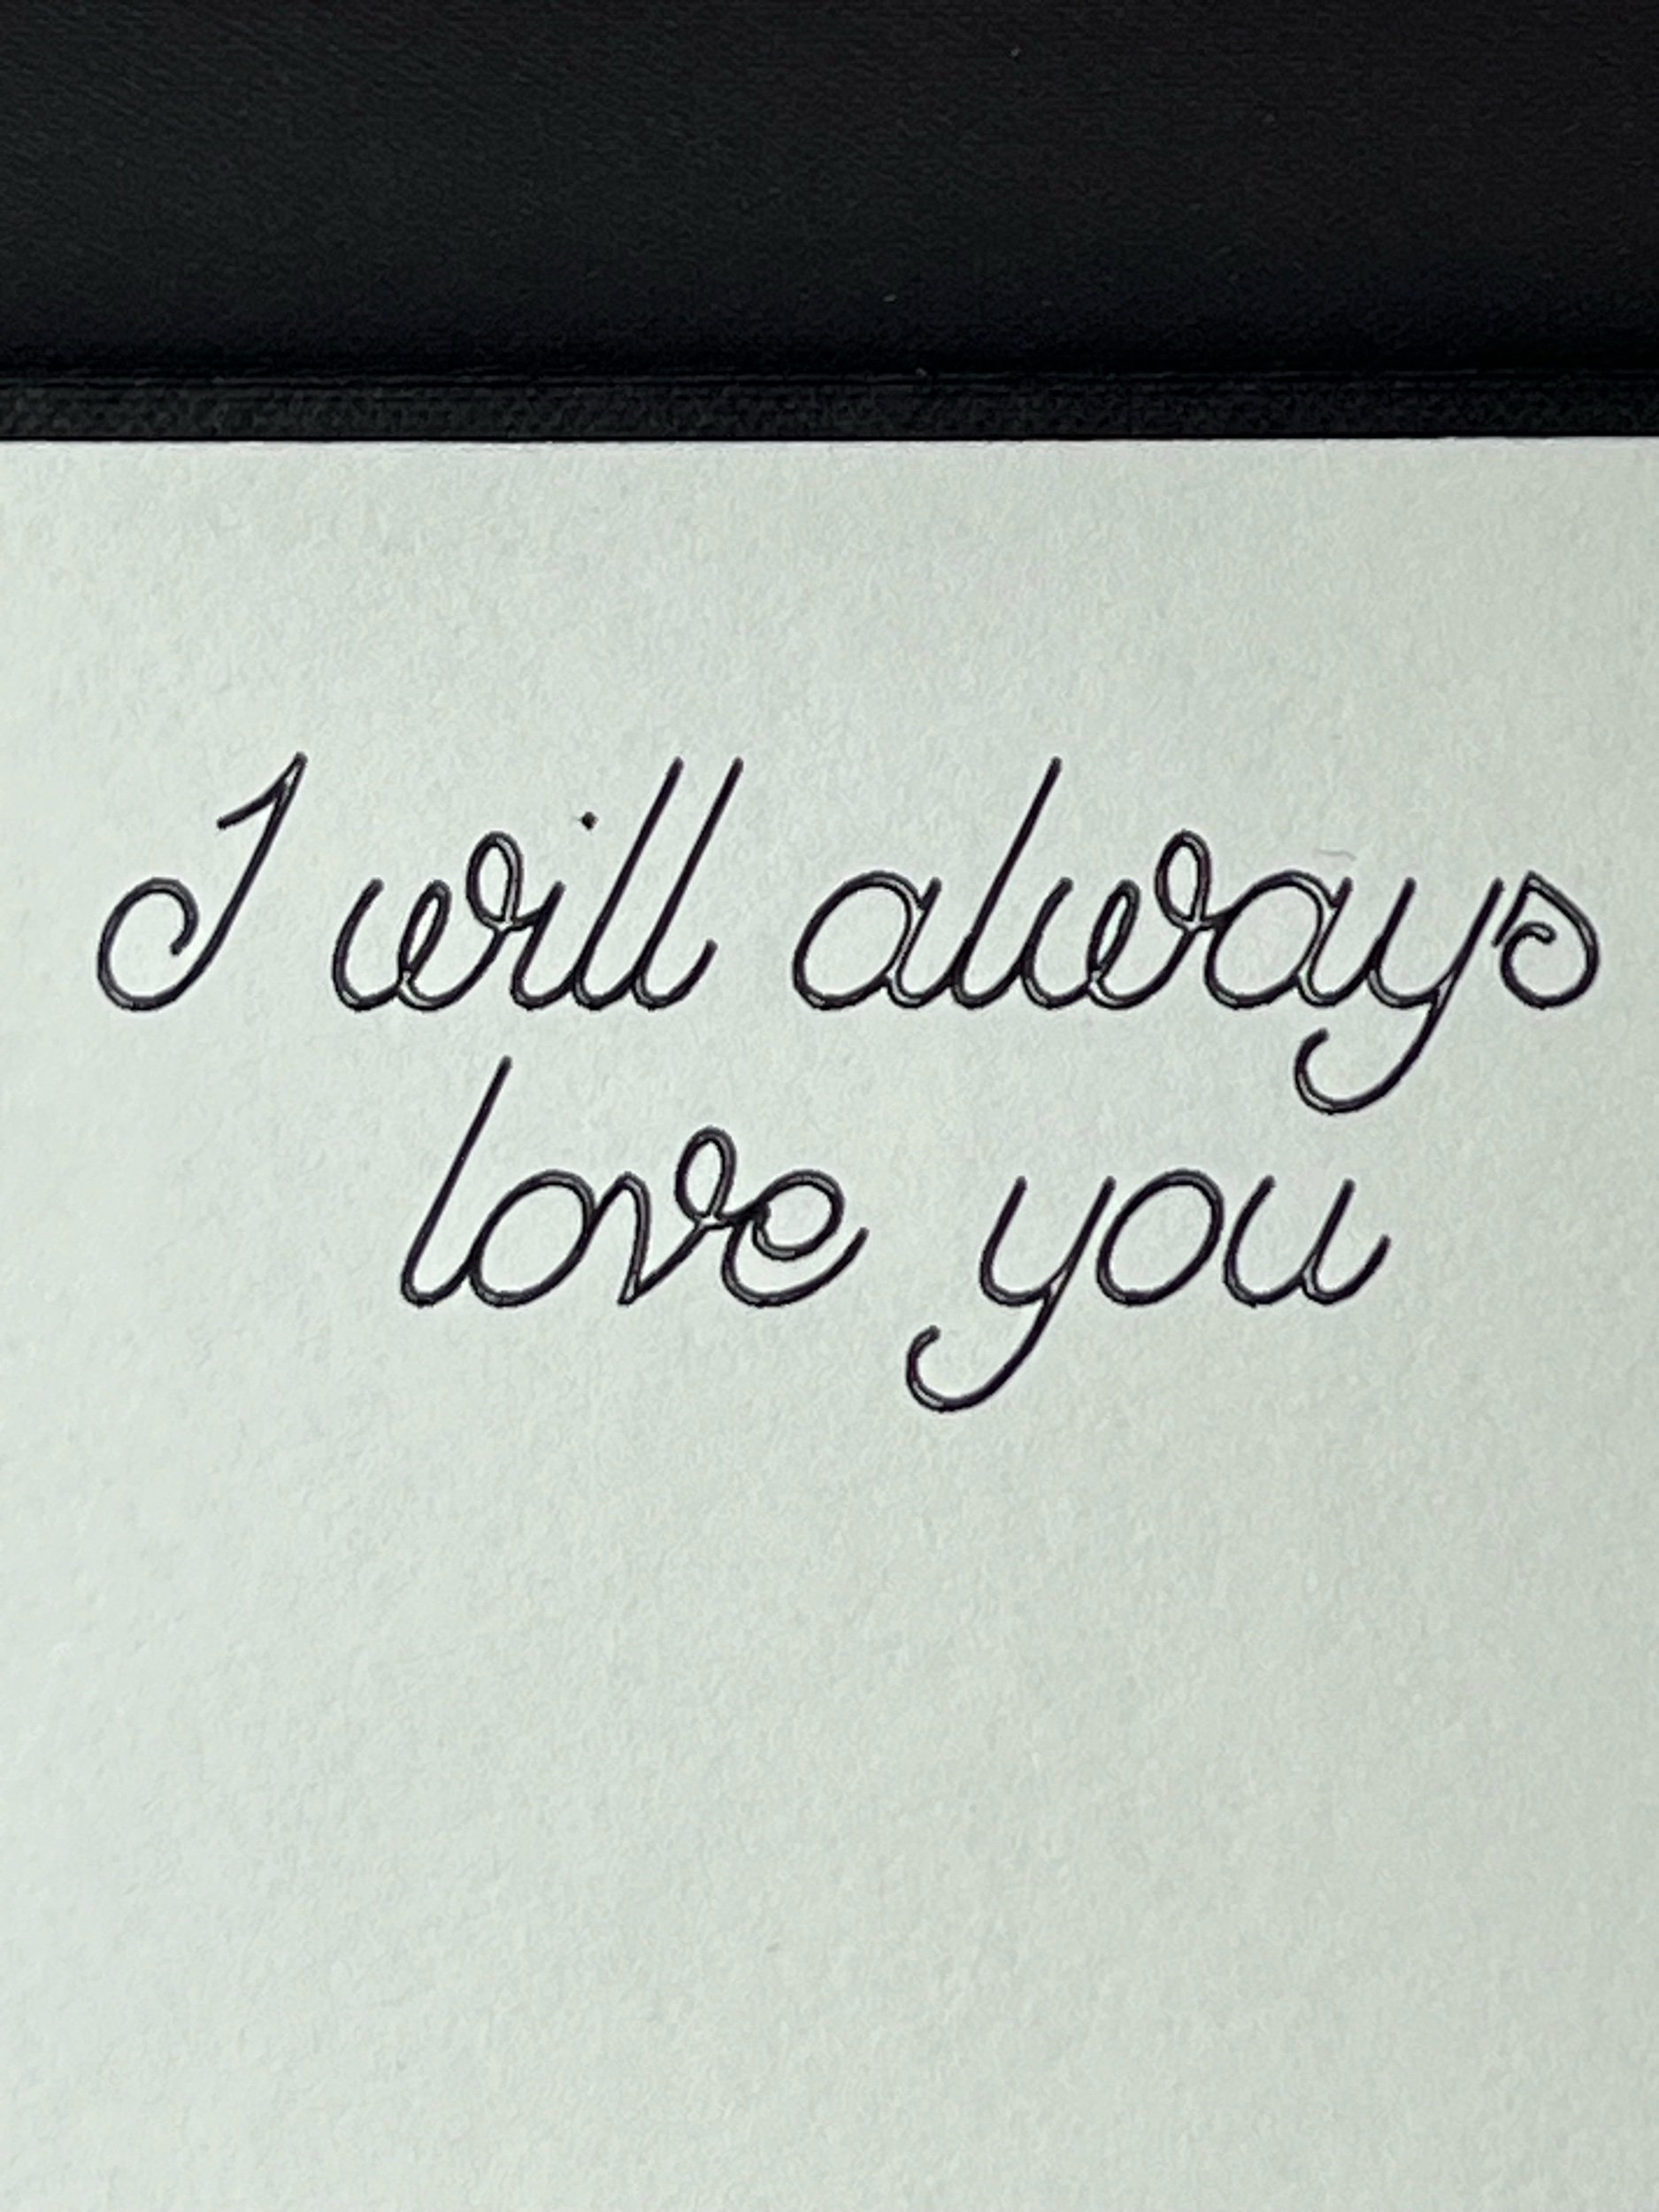 I will always
love you